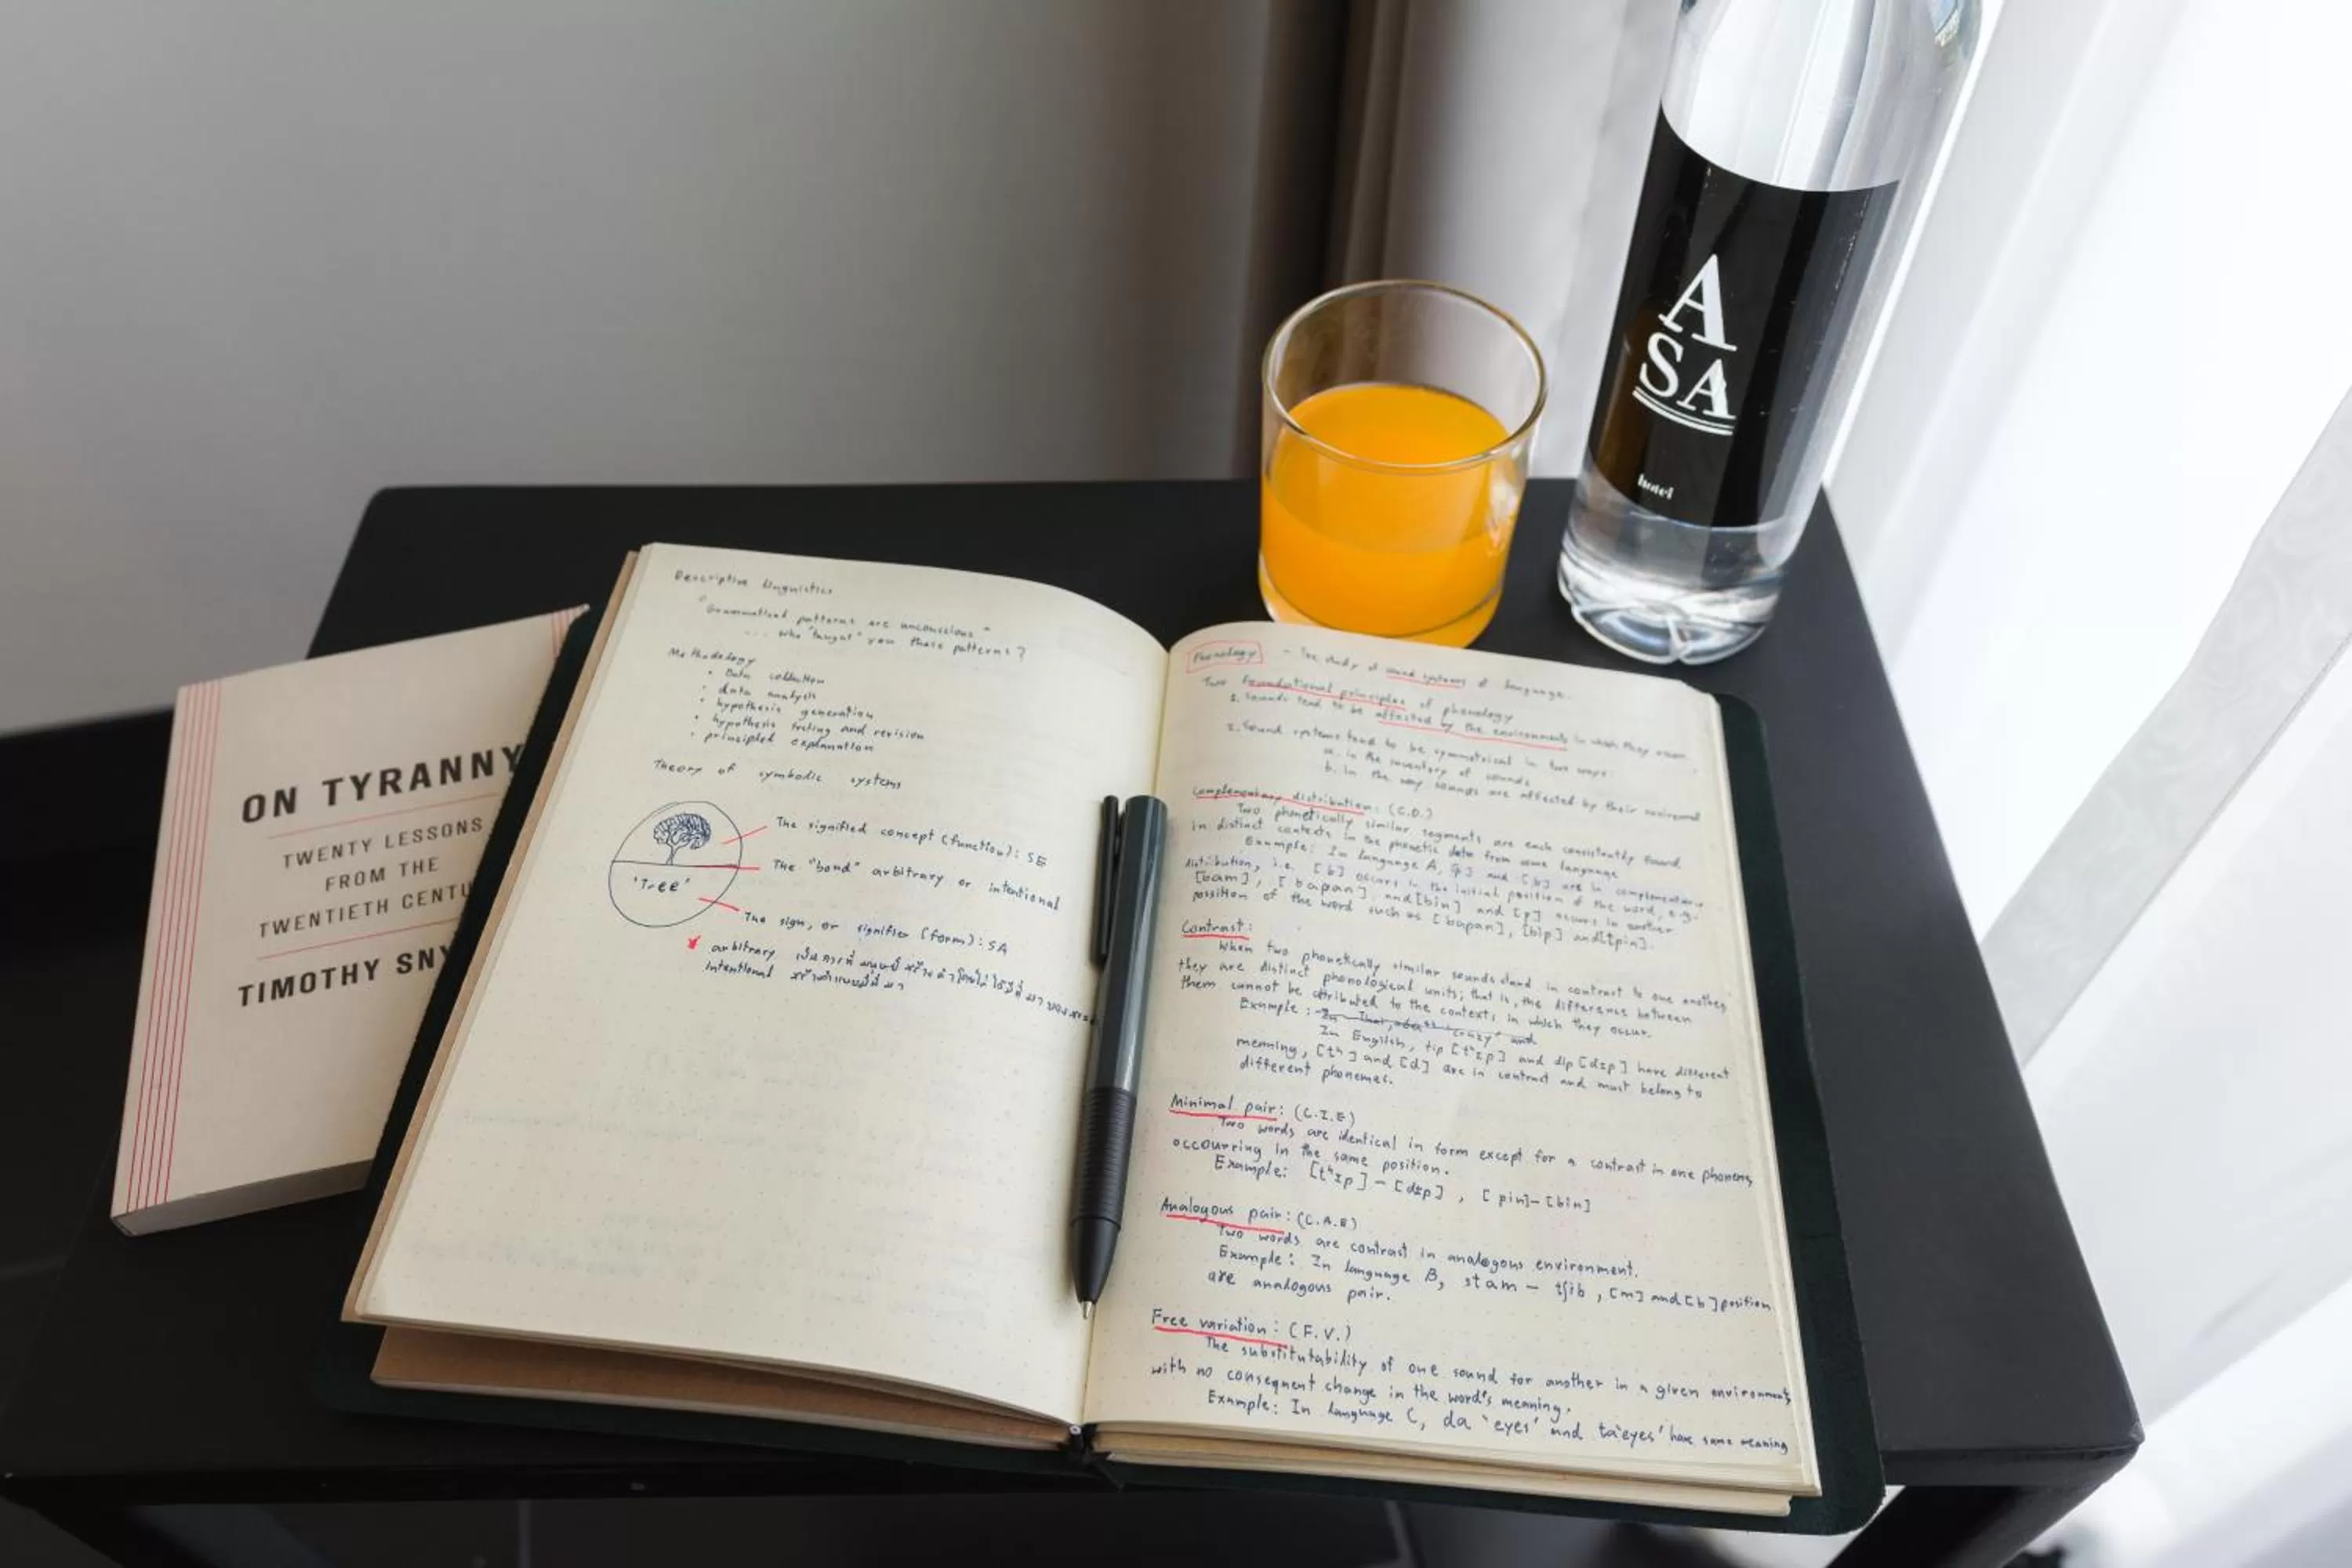 A
SA
hotel
ON TYRANNY
TWENTY LESSONS
FROM THE
TWENTIETH CENTU
TIMOTHY SNY
Descriptive linguistics
"Grammatical patterns are unconscious"
... who "taught" you these patterns?
Methodology
• Data collection
• data analysis
• hypothesis generation
• hypothesis testing and revision
• principled explanation
Theory of symbolic systems
The signified concept (function): SE
The "bond" arbitrary or intentional
'Tree'
The sign, or signifier (form): SA
arbitrary เป็นการที่มนุษย์สร้างคำโดยไม่ได้รู้ที่มาของ
intentional สร้างคำแบบมีที่มา
Phonology - The study of sound systems of language.
Two foundational principles of phonology
1. Sounds tend to be affected by the environments in which they occur.
2. Sound systems tend to be symmetrical in two ways:
a. in the inventory of sounds
b. in the way sounds are affected by their environment
Complementary distribution: (C.D.)
Two phonetically similar segments are each consistently found
in distinct contexts in the phonetic data from some language
Example: In language A, [p] and [b] are in complementary
distribution, i.e. [b] occurs in the initial position of the word, e.g.
[bam], [bapan], and [bin] and [p] occurs in another
position of the word such as [bapan], [bip] and [tpin].
Contrast:
When two phonetically similar sounds stand in contrast to one another
they are distinct phonological units; that is, the difference between
them cannot be attributed to the contexts in which they occur.
Example:
In English, tip [tʰɪp] and dip [dɪp] have different
meaning, [tʰ] and [d] are in contrast and must belong to
different phonemes.
Minimal pair: (C.I.E)
Two words are identical in form except for a contrast in one phoneme,
occourring in the same position.
Example: [tʰɪp] - [dɪp], [pin] - [bin]
Analogous pair: (C.A.E)
Two words are contrast in analogous environment.
Example: In language B, stam - tʃib, [m] and [b] position
are analogous pair.
Free variation: (F.V.)
The substitutability of one sound for another in a given environment,
with no consequent change in the word's meaning.
Example: In language C, da 'eyes' and ta 'eyes' have same meaning